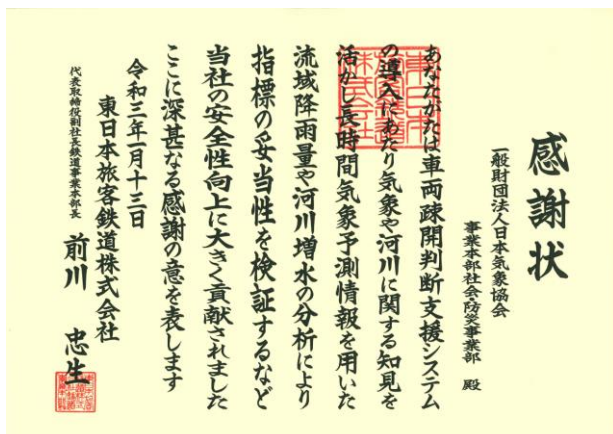 感謝状
一般財団法人日本気象協会
事業本部社会・防災事業部 殿
あなたがたは車両疎開判断支援システム
の導入にあたり気象や河川に関する知見を
活かし長時間気象予測情報を用いた
流域降雨量や河川増水の分析により
指標の妥当性を検証するなど
当社の安全性向上に大きく貢献されました
ここに深甚なる感謝の意を表します
令和三年一月十三日
東日本旅客鉄道株式会社
代表取締役副社長鉄道事業本部長
前川 忠生